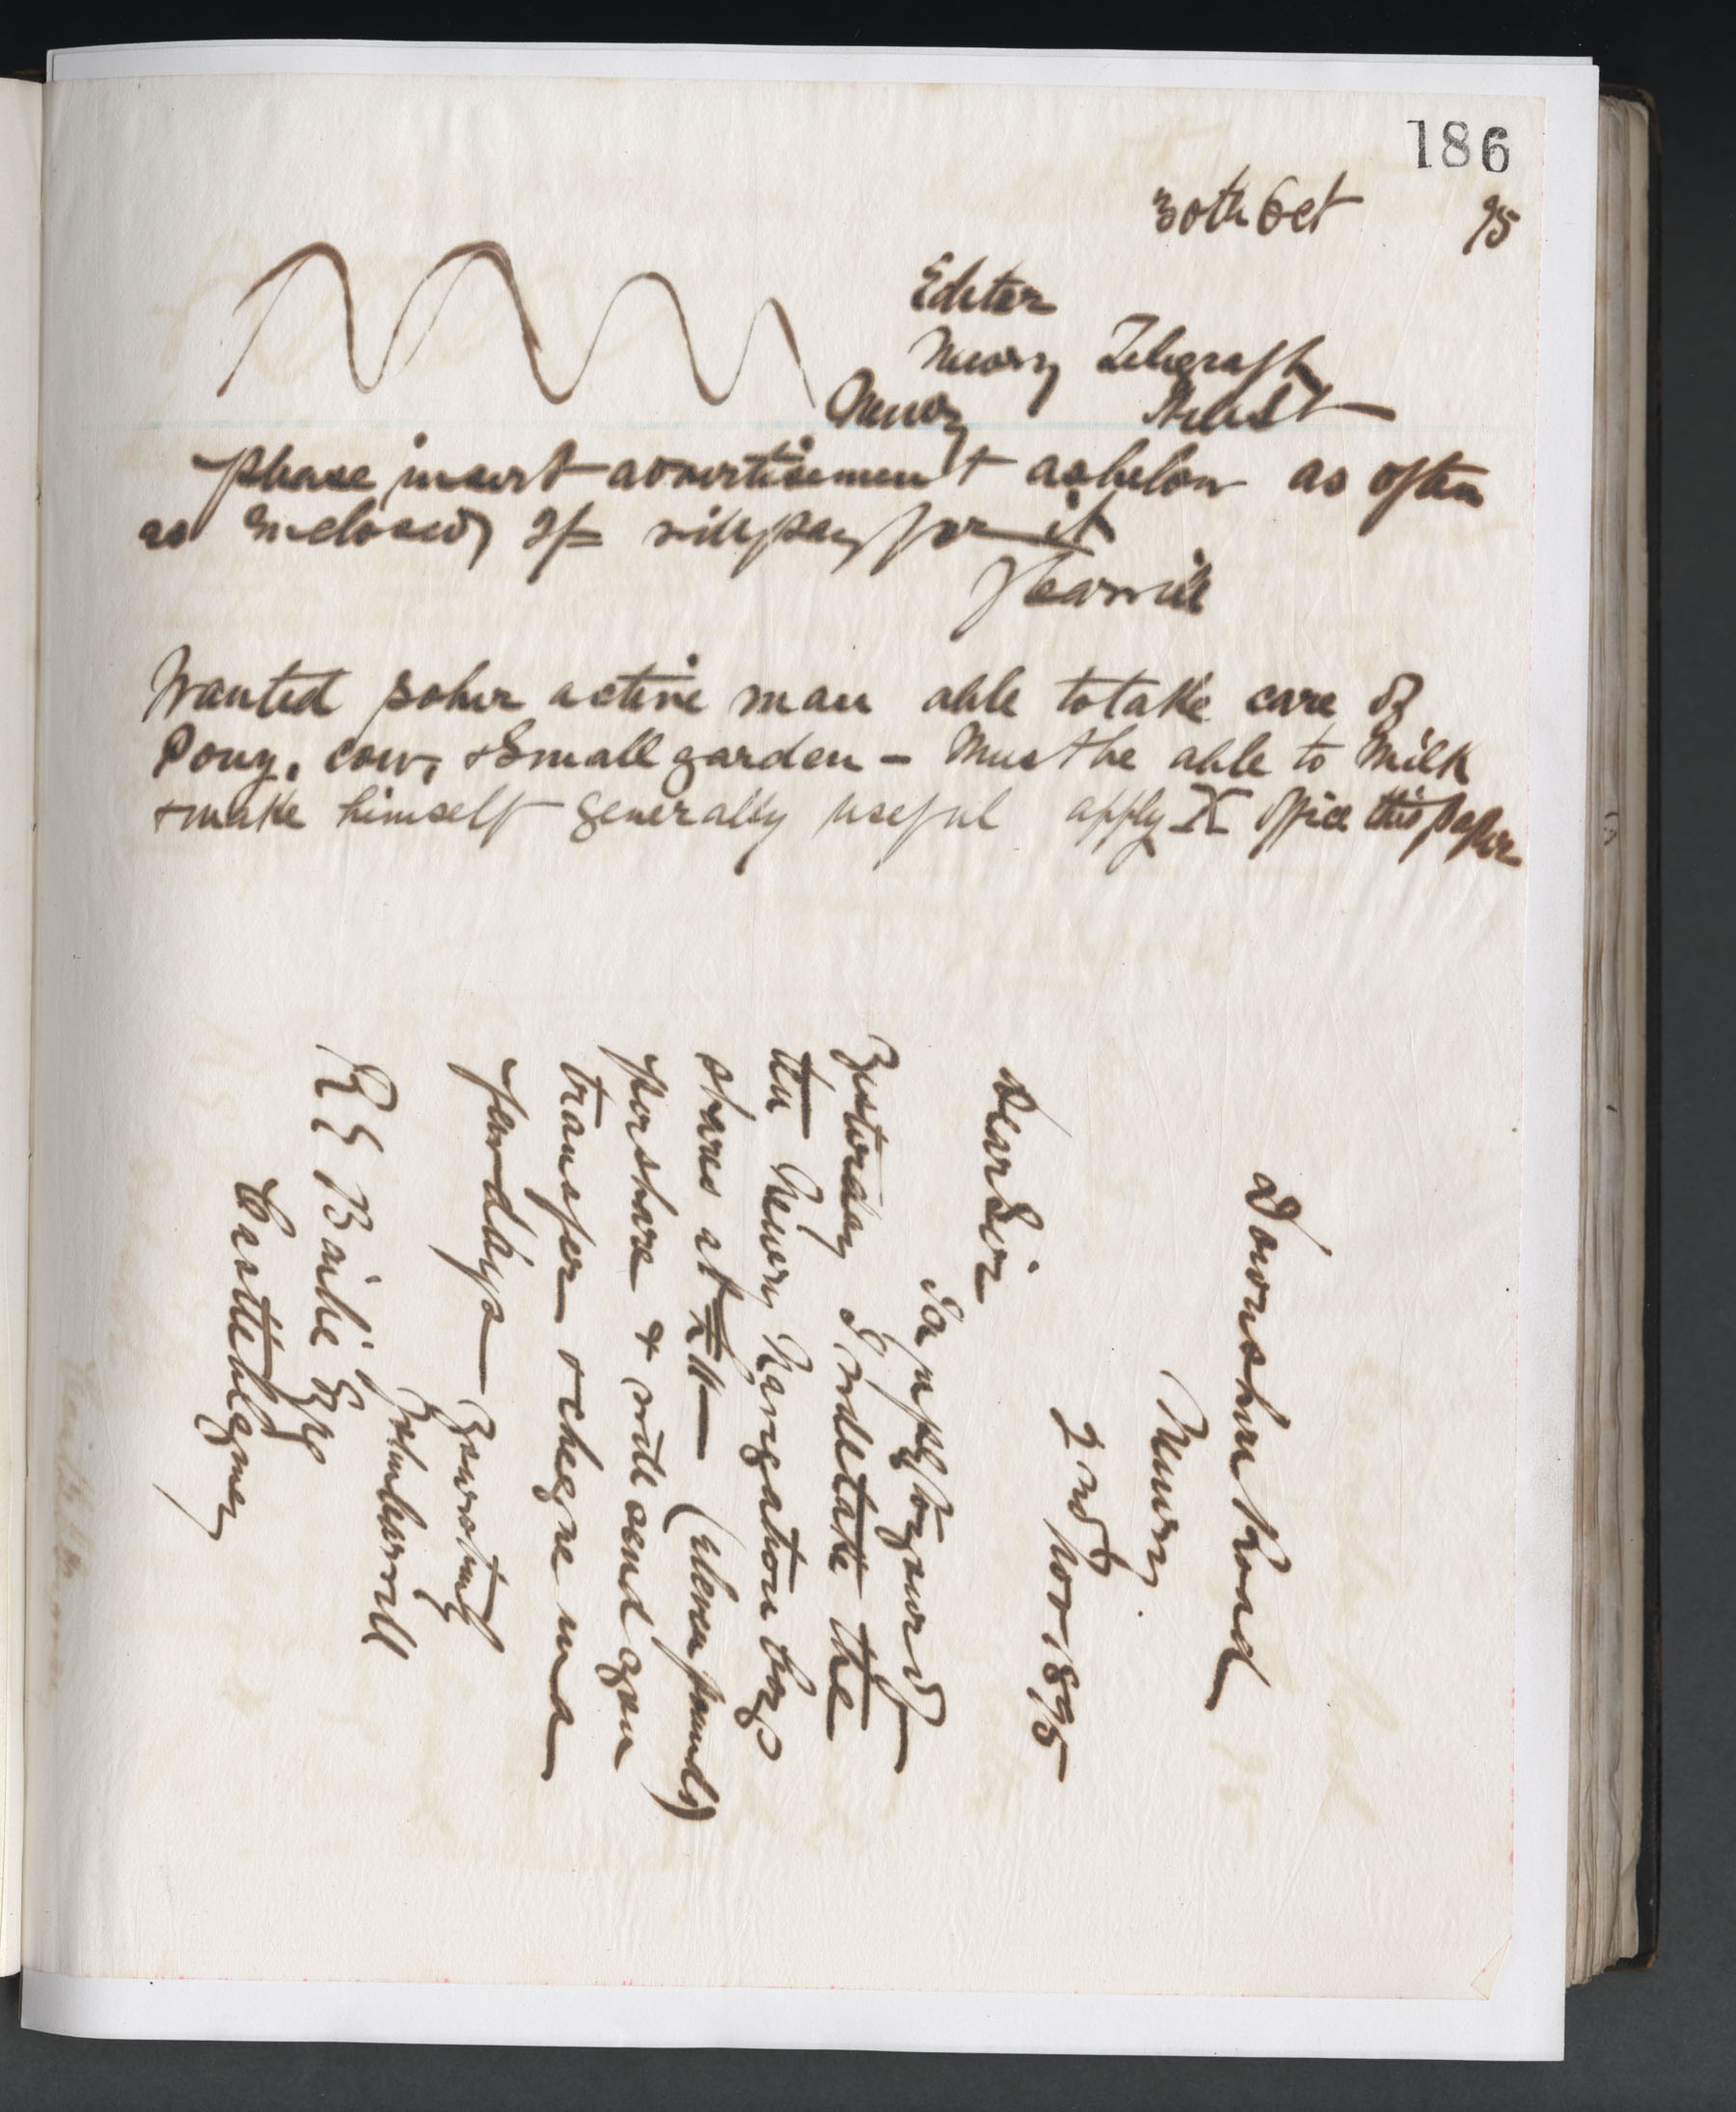 186
30th Oct 95
Editor
Newry Telegraph
Newry
please insert advertisement as below as often
as enclosed 2/= will pay for it
JCarvill
Wanted sober active man able to take care of
Pony, cow, & Small garden - Must be able to Milk
& make himself generally useful apply X Office this paper
Downshire Road
Newry
2nd Nov 1895
Dear Sir
In reply to yours of
Yesterday I will take the
ten Newry Navigation Coys
shares at £11 — (eleven pounds)
per share & will send you
transfer & cheque in a
few days — Yours truly
John Carvill
R E Bailie Esq
Castlebizney